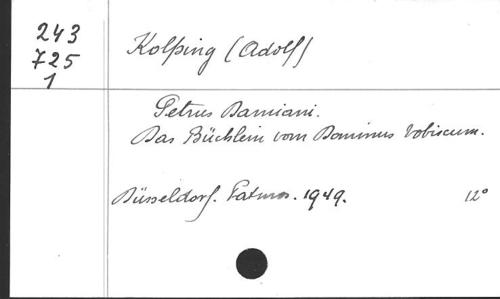 243
725
1
Kolping (Adolf)
Petrus Damiani.
Das Büchlein vom Dominus vobiscum.
Düsseldorf. Patmos. 1949. 12°